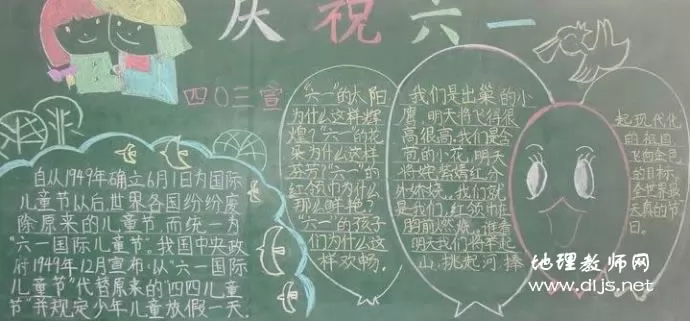 庆祝六一
四〇三宣
自从1949年确立6月1日为国际
儿童节以后世界各国纷纷废
除原来的儿童节而统一为
“六一国际儿童节”。我国中央政
府1949年12月宣布:以“六一国际
儿童节”代替原来的“四四儿童
节”并规定少年儿童放假一天.
“六一”的太阳
为什么这样辉
煌?“六一”的花
朵为什么这样
芬芳?“六一”的
红领巾为什么
那么鲜艳?
“六一”的孩子
们为什么这
样欢畅。
我们是出巢的小
鹰,明天将飞得很
高很高.我们是含
苞的小花,明天
将姹紫嫣红分
外妖娆..我们就
是我们,红领巾在
胸前燃烧。谁看
明天我们将举起
山,挑起河,捧
起现代化
的祖国,
飞向金色
的目标,
全世界最
天真的节
日。
地理教师网
www.dljs.net